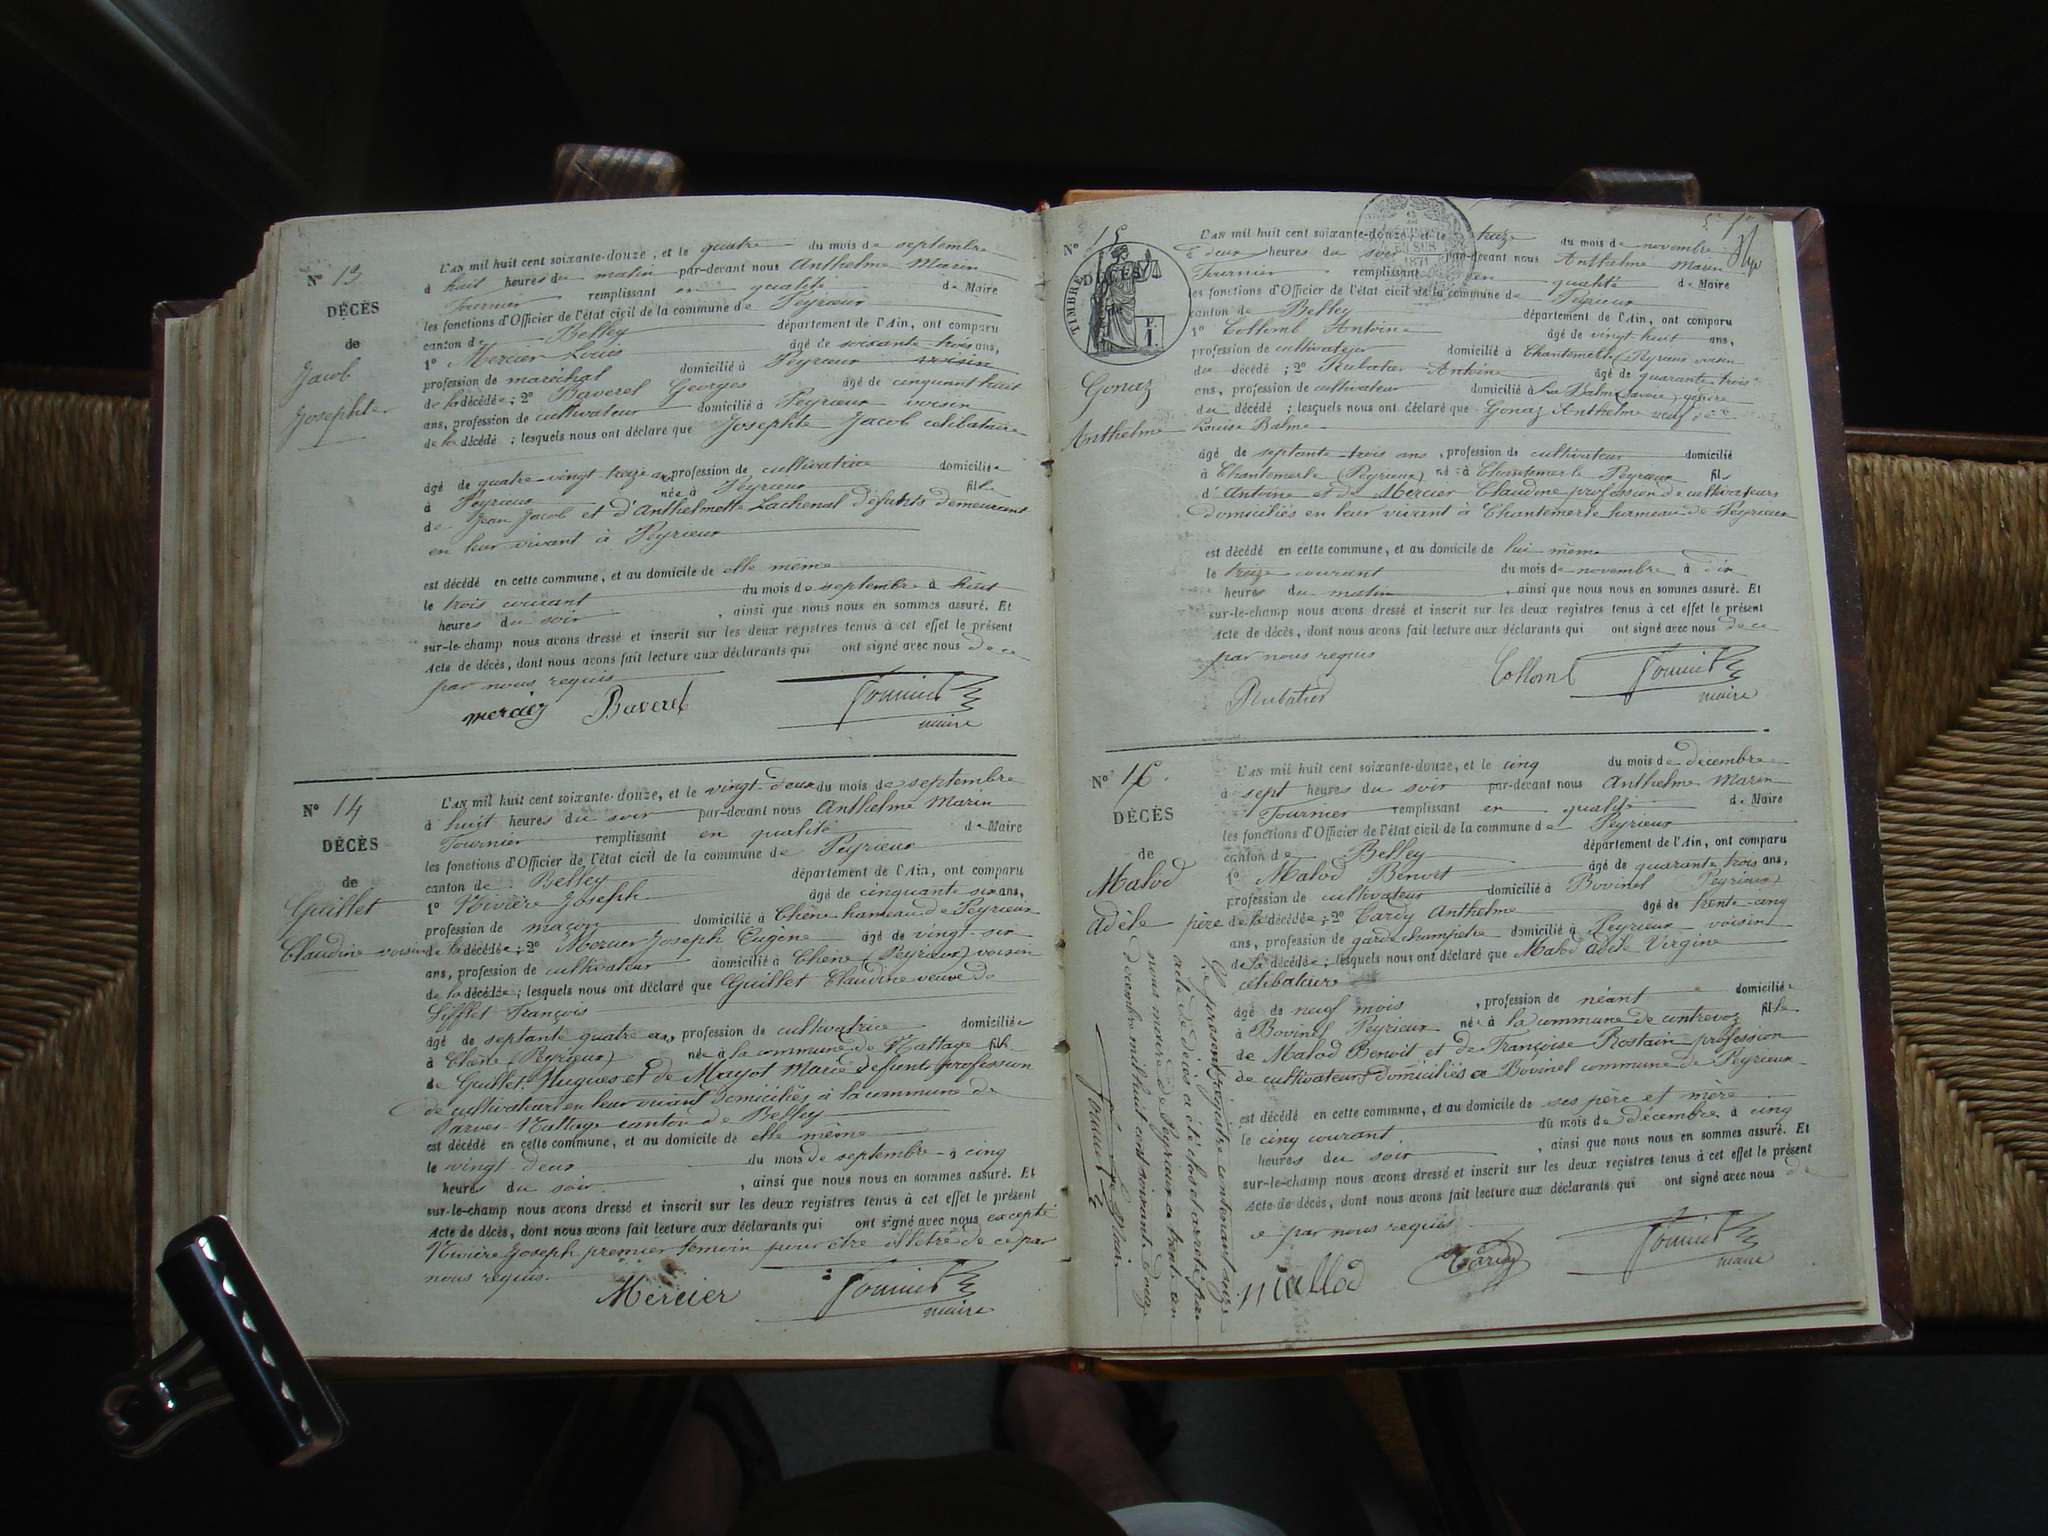 N° 13
DÉCÈS
de
Jacob
Josephte
L'AN mil huit cent soixante-douze, et le quatre du mois de septembre
à huit heures du matin par-devant nous Anthelme Marin
Fournier remplissant en qualité de Maire
les fonctions d'Officier de l'état civil de la commune de Peyrieux
canton de Belley département de l'Ain, ont comparu
1° Mercier Louis âgé de soixante-trois ans,
profession de maréchal domicilié à Peyrieux voisin
de la décédée ; 2° Baverel Georges âgé de cinquant huit
ans, profession de cultivateur domicilié à Peyrieux voisin
de la décédé ; lesquels nous ont déclaré que Josephte Jacob celibataire
âgé de quatre-vingt treize ans profession de cultivatrice domiciliée
à Peyrieux née à Peyrieux fille
de Jean Jacob et d'Anthelmette Lachenal défunts demeurant
en leur vivant à Peyrieux
est décédé en cette commune, et au domicile de elle même
le trois courant du mois de septembre à huit
heures du soir , ainsi que nous nous en sommes assuré. Et
sur-le-champ nous avons dressé et inscrit sur les deux registres tenus à cet effet le présent
Acte de décès, dont nous avons fait lecture aux déclarants qui ont signé avec nous de ce
par nous requis
mercier Baverel Fournier
maire
N° 14
DÉCÈS
de
Guillet
Claudine
L'AN mil huit cent soixante-douze, et le vingt-deux du mois de septembre
à huit heures du soir par-devant nous Anthelme Marin
Fournier remplissant en qualité de Maire
les fonctions d'Officier de l'état civil de la commune de Peyrieux
canton de Belley département de l'Ain, ont comparu
1° Rivière Joseph âgé de cinquante six ans,
profession de maçon domicilié à Chêne hameau de Peyrieux
voisin de la décédée ; 2° Mercier Joseph Eugène âgé de vingt-six
ans, profession de cultivateur domicilié à Chêne (Peyrieux) voisin
de la décédée ; lesquels nous ont déclaré que Guillet Claudine veuve de
Sifflet François
âgé de septante quatre ans, profession de cultivatrice domiciliée
à Chêne (Peyrieux) née à la commune de Nattage fille
de Guillet Hugues et de Mayot Marie defunt profession
de cultivateurs en leur vivant domiciliés à la commune de
Parves-Nattage canton de Belley
est décédé en cette commune, et au domicile de elle même
le vingt deux du mois de septembre à cinq
heures du soir , ainsi que nous nous en sommes assuré. Et
sur-le-champ nous avons dressé et inscrit sur les deux registres tenus à cet effet le présent
Acte de décès, dont nous avons fait lecture aux déclarants qui ont signé avec nous excepté
Rivière Joseph premier temoin pour être illetré de ce par
nous requis.
Mercier Fournier
maire
N° 15
DÉCÈS
de
TIMBRE
1 F.
2
EN SUS
1871
Gonaz
Anthelme
L'AN mil huit cent soixante-douze, et le treize du mois de novembre
à deux heures du soir par-devant nous Anthelme Marin
Fournier remplissant en qualité de Maire
les fonctions d'Officier de l'état civil de la commune de Peyrieux
canton de Belley département de l'Ain, ont comparu
1° Collomb Antoine âgé de vingt huit ans,
profession de cultivateur domicilié à Chantemerle (Peyrieux voisin
du décédé ; 2° Rubatier Antoine âgé de quarante-trois
ans, profession de cultivateur domicilié à La Balme (Savoie) gendre
du décédé ; lesquels nous ont déclaré que Gonaz Anthelme veuf de
Louise Balme
âgé de septante-trois ans , profession de cultivateur domicilié
à Chantemerle (Peyrieux) né à Chantemerle Peyrieux fils
d'Antoine et de Mercier Claudine profession de cultivateurs
domiciliés en leur vivant à Chantemerle hameau de Peyrieux
est décédé en cette commune, et au domicile de lui même
le treize courant du mois de novembre à dix
heures du matin , ainsi que nous nous en sommes assuré. Et
sur-le-champ nous avons dressé et inscrit sur les deux registres tenus à cet effet le présent
Acte de décès, dont nous avons fait lecture aux déclarants qui ont signé avec nous de ce
par nous requis
Rubatier Collomb Fournier
maire
N° 16.
DÉCÈS
de
Malod
Adèle
L'AN mil huit cent soixante-douze, et le cinq du mois de décembre
à sept heures du soir par-devant nous Anthelme Marin
Fournier remplissant en qualité de Maire
les fonctions d'Officier de l'état civil de la commune de Peyrieux
canton de Belley département de l'Ain, ont comparu
1° Malod Benoit âgé de quarante trois ans,
profession de cultivateur domicilié à Bovinel Peyrieux)
père de la décédée ; 2° Tardy Anthelme âgé de trente-cinq
ans, profession de garde champêtre domicilié à Peyrieux voisin
de la décédée ; lesquels nous ont déclaré que Malod adèle Virgine
célibataire
âgé de neuf mois , profession de néant domiciliée
à Bovinel Peyrieux née à la commune de contrevoz fille
de Malod Benoit et de Françoise Rostain profession
de cultivateurs domiciliés à Bovinel commune de Peyrieux
est décédé en cette commune, et au domicile de ses père et mère
le cinq courant du mois de décembre à cinq
heures du soir , ainsi que nous nous en sommes assuré. Et
sur-le-champ nous avons dressé et inscrit sur les deux registres tenus à cet effet le présent
Acte de décès, dont nous avons fait lecture aux déclarants qui ont signé avec nous de
ce par nous requis
Mallod Tardy Fournier
maire
Le présent registre contenant seize
acte de décès a été clos et arreté par
nous maire de Peyrieux ce trente-un
decembre mil huit cent soixante-douze
Le Maire
Fournier